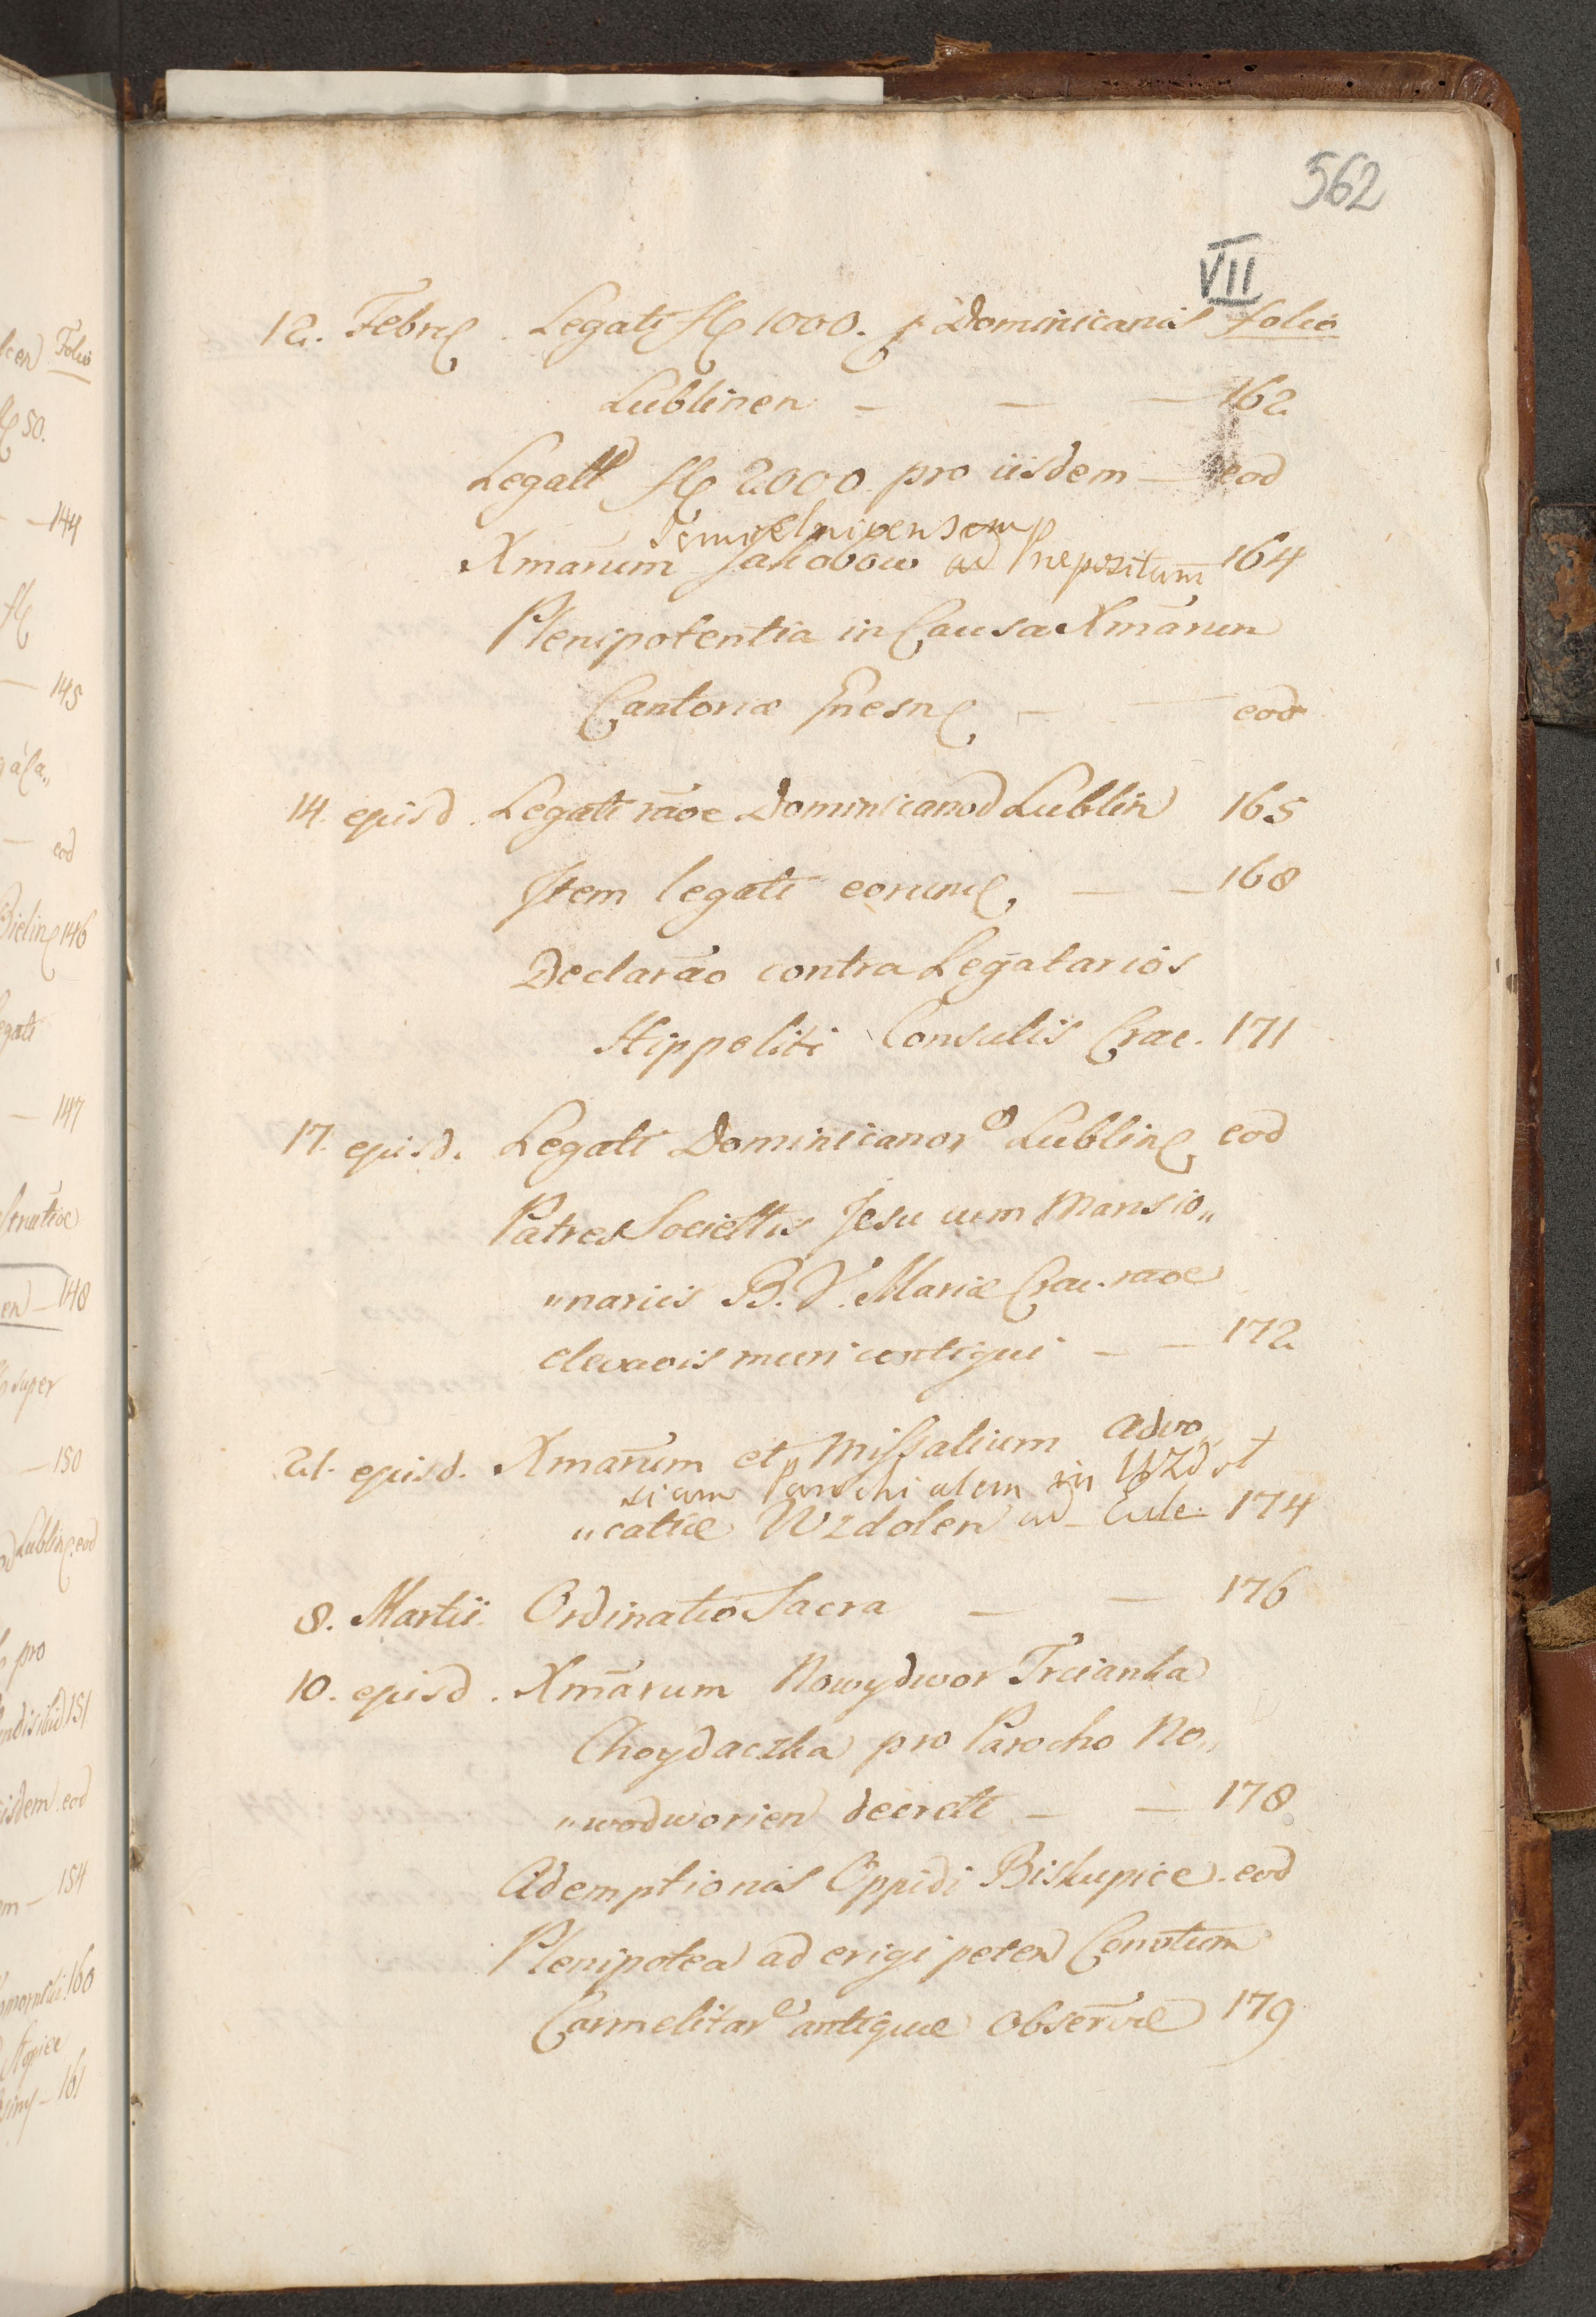 562
VII
12. Febrę. Legati fl 1000. p Dominicanis folio
Lublinen — — — 162
Legati fl 2000 pro iisdem — eod
Xmārum Jakobow ad Prepositum 164
Plenipotentia in Causa Xmārum
Cantoriæ Gnesnę — — eod
14. ejusd. Legati rāoe Dominicanoꝝ Lublin 165
Item legati eorumę, — — 168
Declarāo contra Legatarios
Hippoliti Consulis Crac. 171
17. ejusd. Legati Dominicanorꝝ Lublinę eod
Patres Societtis Jesu cum Mansio„
„nariis B. V. Mariæ Crac. raoe
elevaōis muri contigui — — 172
21. ejusd. Xmarūm et Missalium Advo„
siam Parochialem in Wzdol
„catiæ Wzdolen ad Eccle 174
8. Martii. Ordinatio Sacra — — 176
10. ejusd. Xmārum Nowydwor Trcianka
Choydaczka pro Parocho No„
„wodworien decreti — — 178
Ademptionis Oppidi Biskupice. eod
Plenipotea ad erigi peten Convtum
Carmelitarꝝ antiquæ observæ 179
Folio
50.
144
145
eod
146
147
148
super
150
Lublinę. eod
pro
151
iisdem. eod
154
160
161